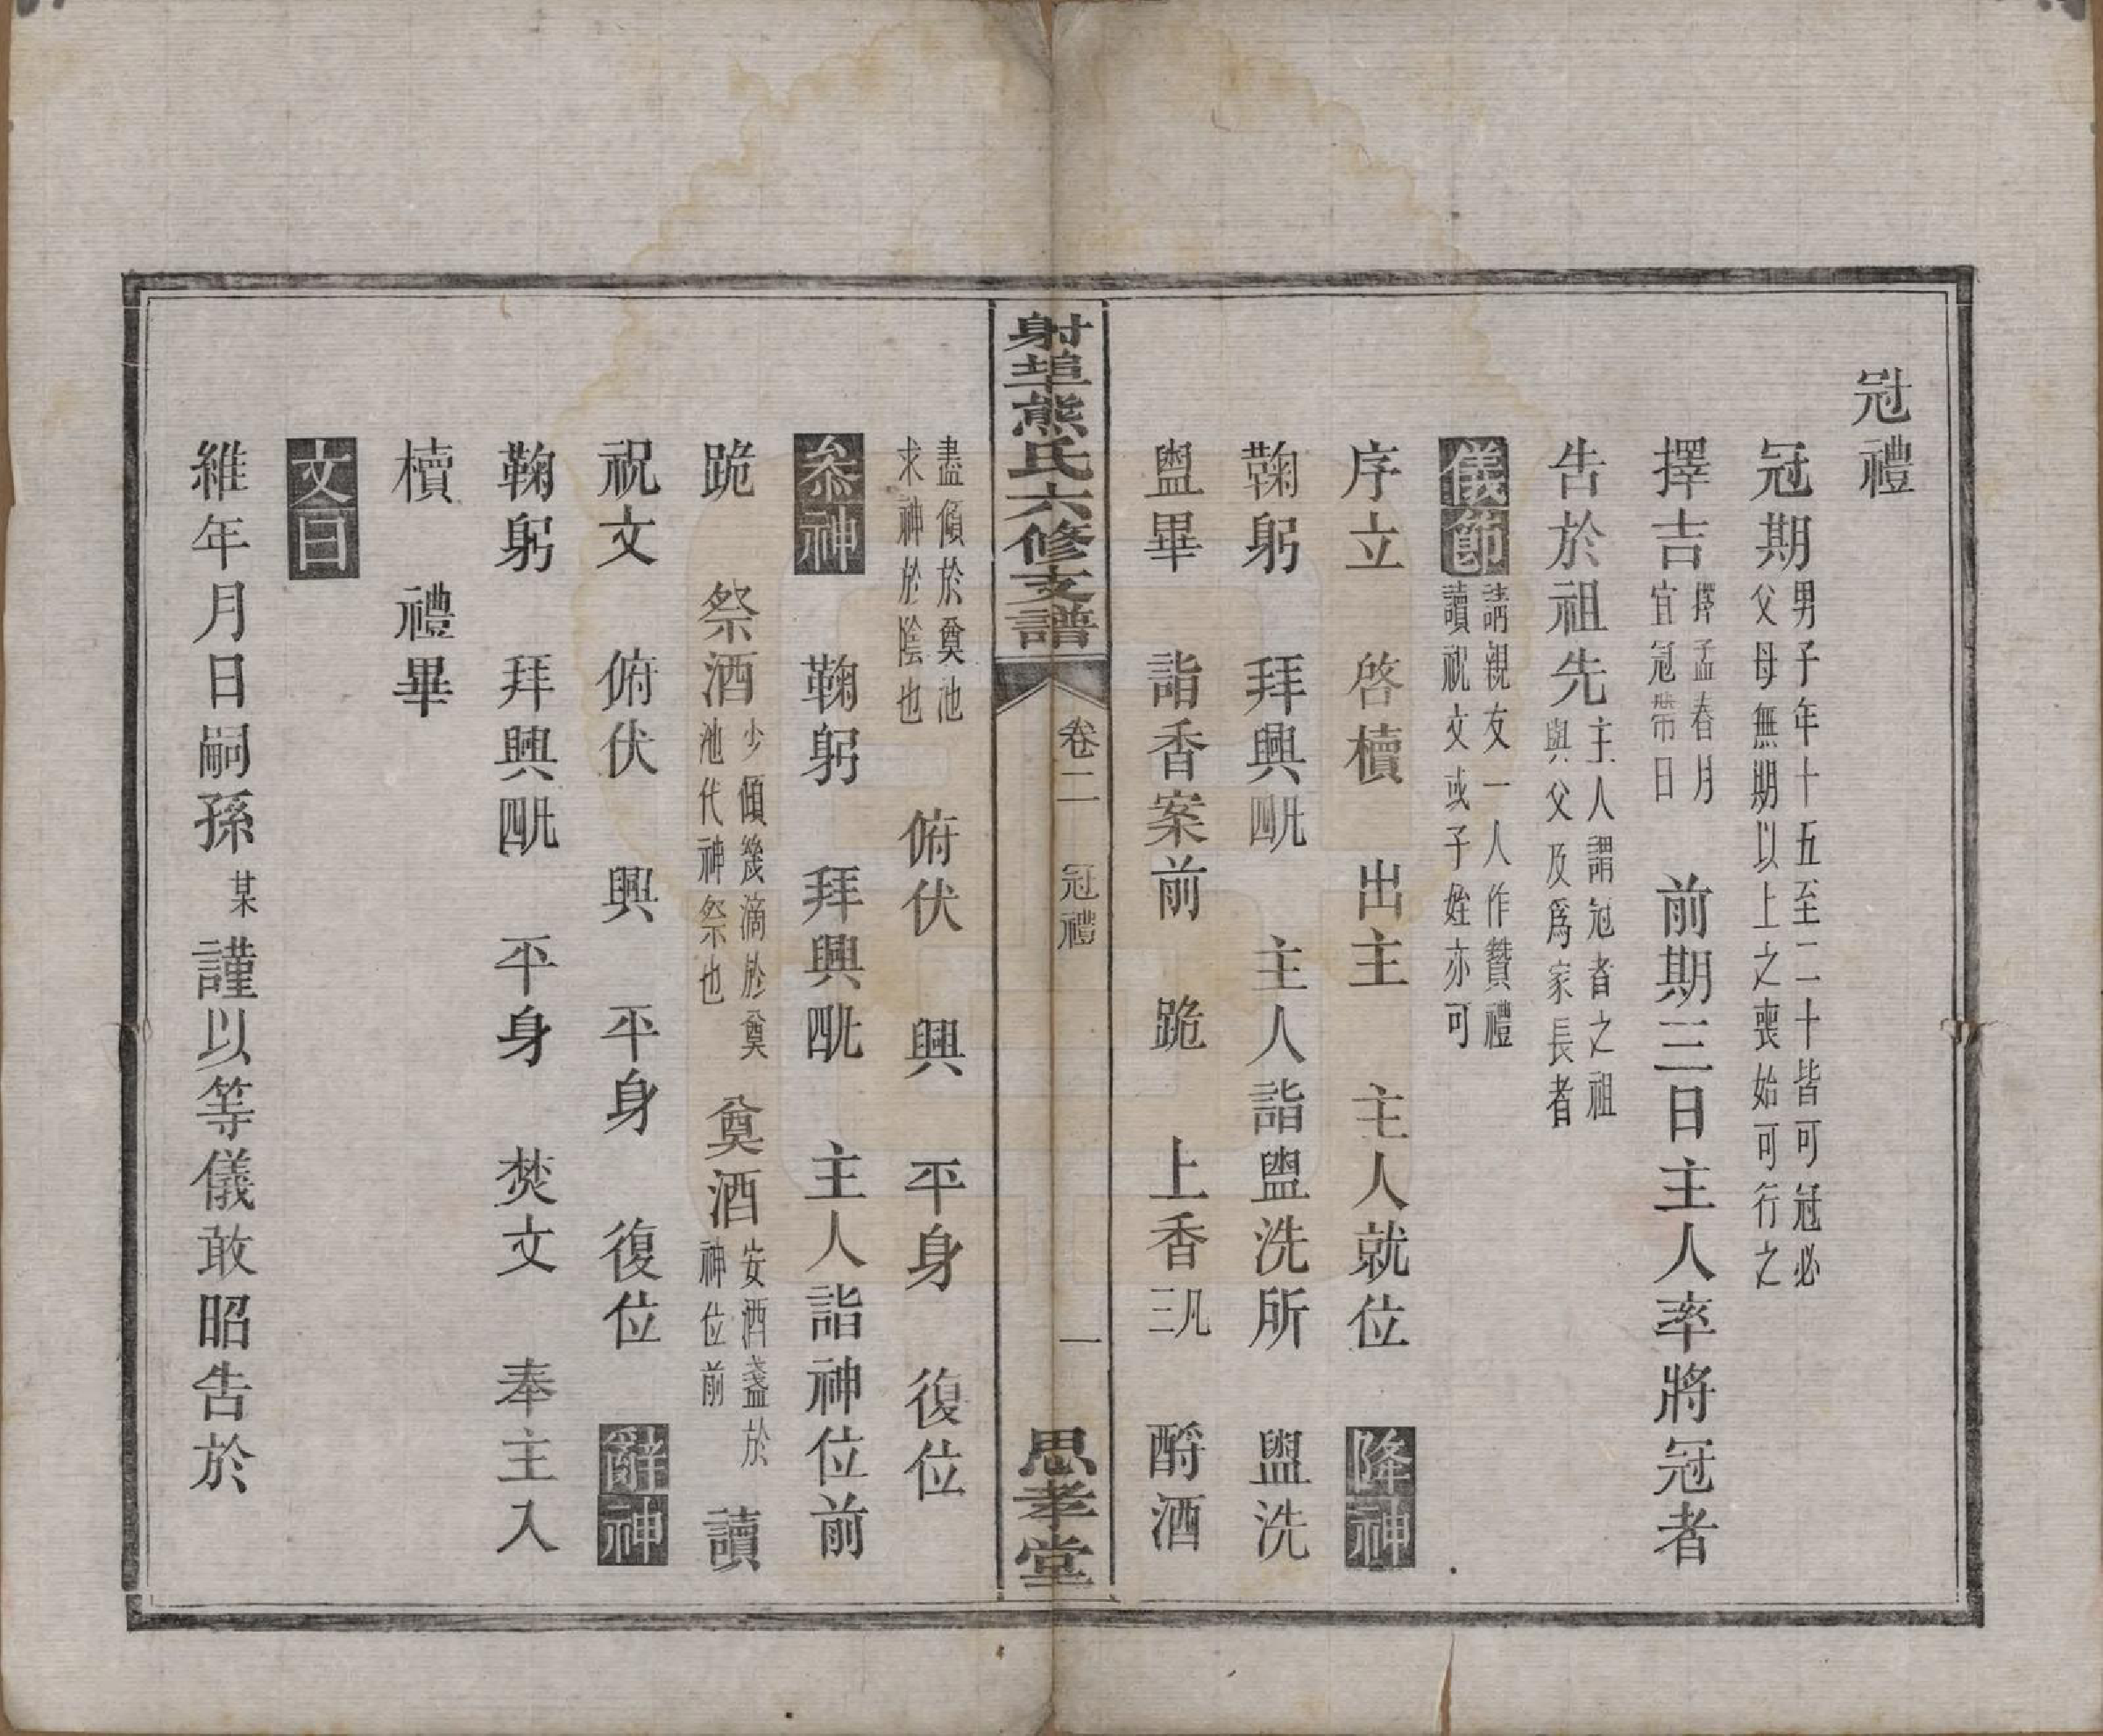 冠禮
冠期男子年十五至二十皆可冠必父母無期以上之喪始可行之
擇吉擇孟春月宜冠帶日　前期三日主人率將冠者
告於祖先主人謂冠者之祖與父及爲家長者
儀節請親友一人作贊禮讀祝文或子姪亦可
序立　啓櫝　出主　主人就位　降神
鞠躬　拜興四　主人詣盥洗所　盥洗
盥畢　詣香案前　跪　上香凡三　酹酒
射埠熊氏六修支譜　卷二　冠禮　一　思孝堂
盡傾於奠池求神於陰也　俯伏　興　平身　復位
叅神　鞠躬　拜興四　主人詣神位前
跪　祭酒少傾幾滴於奠池代神祭也　奠酒安酒盞於神位前　讀
祝文　俯伏　興　平身　復位　辭神
鞠躬　拜興四　平身　焚文　奉主入
櫝　禮畢
文曰
維年月日嗣孫某謹以等儀敢昭告於